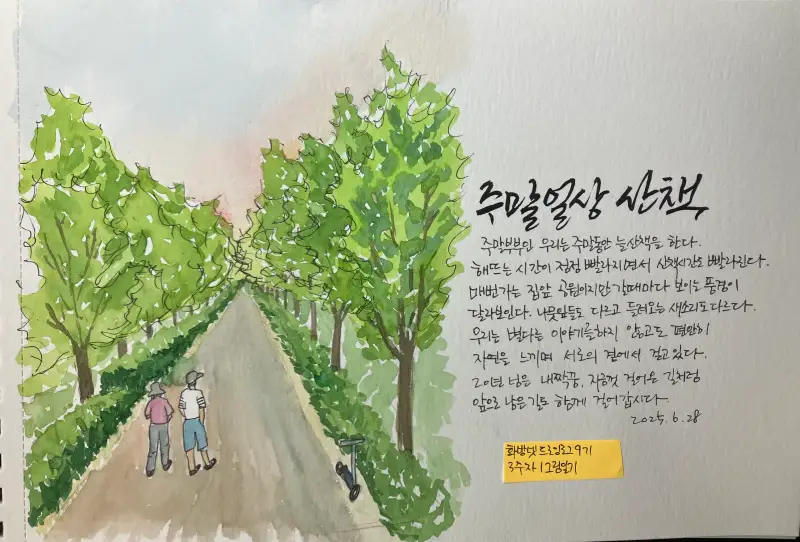 주말일상 산책
주말부부인 우리는 주말동안 늘 산책을 한다.
해뜨는 시간이 점점 빨라지면서 산책시간도 빨라진다.
매번가는 집앞 공원이지만 갈때마다 보이는 풍경이
달라보인다. 나뭇잎들도 다르고 들려오는 새소리도 다르다.
우리는 별다른 이야기를하지 않고도 편안히
자연을 느끼며 서로의 곁에서 걷고있다.
20년 넘은 내짝꿍, 지금껏 걸어온 길처럼
앞으로 남은길도 함께 걸어갑시다.
2025.6.28
9기
3주차 그림일기